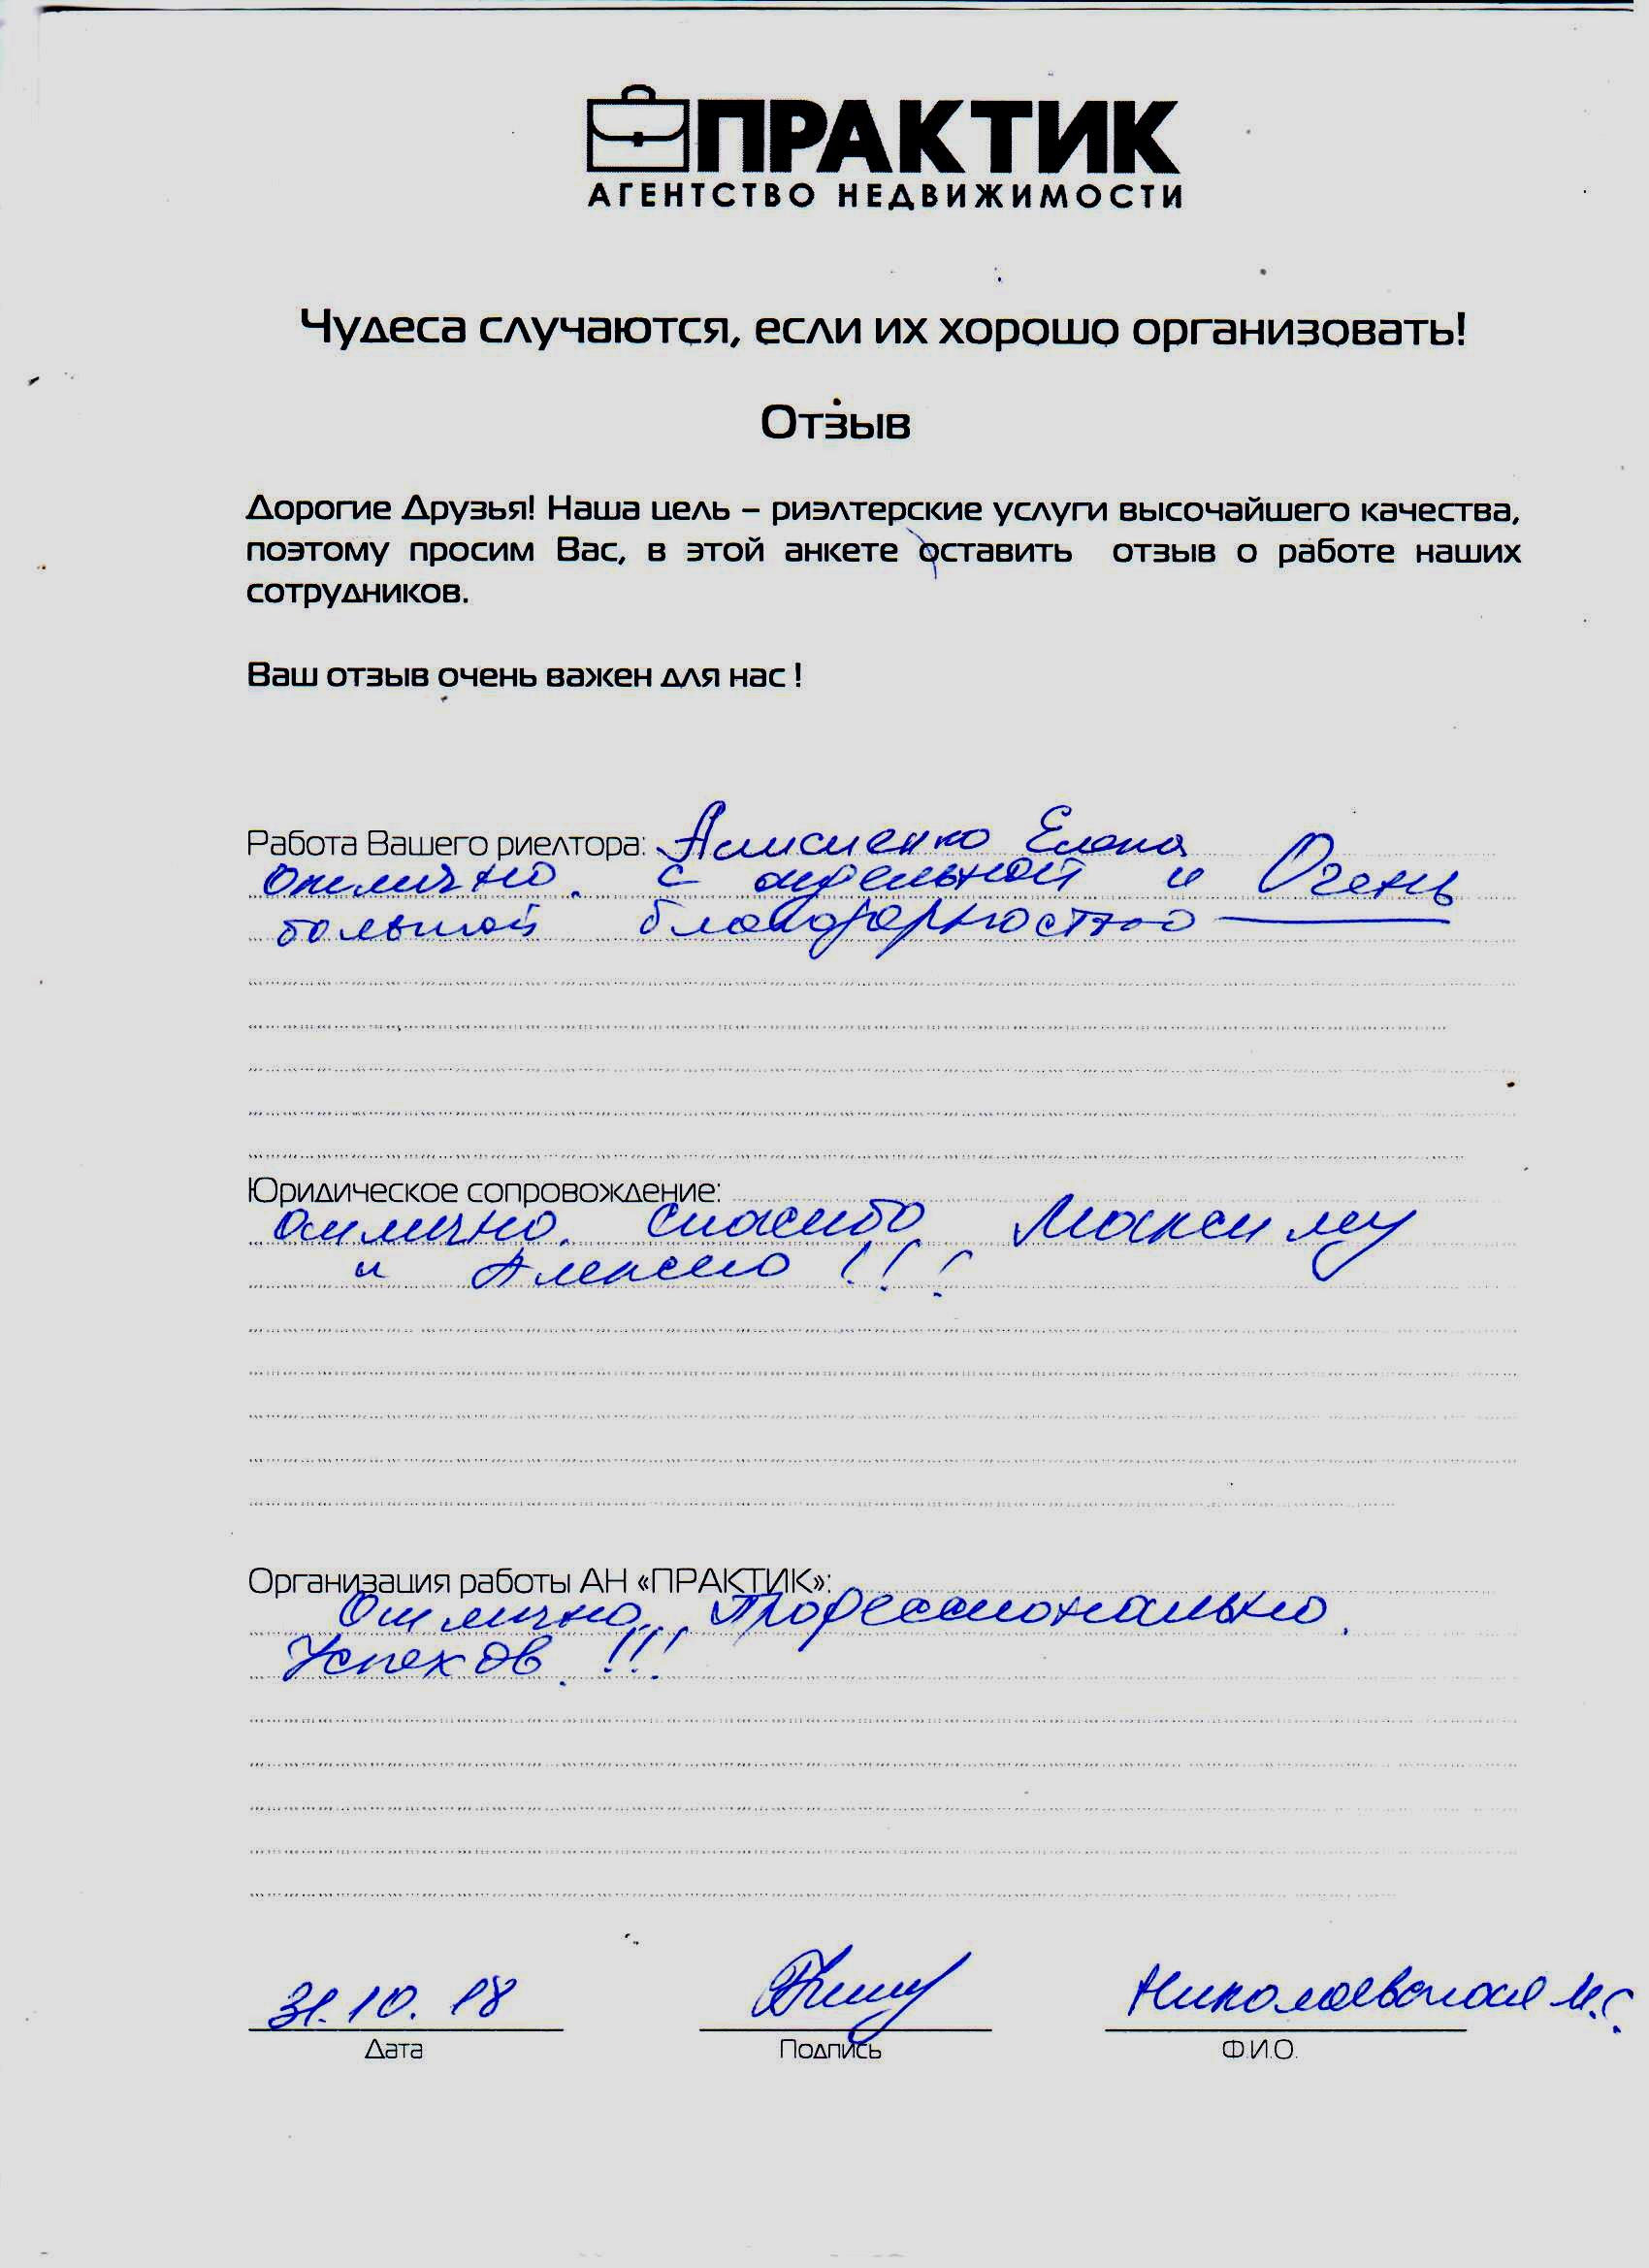 ПРАКТИК
АГЕНТСТВО НЕДВИЖИМОСТИ
Чудеса случаются, если их хорошо организовать!
Отзыв
Дорогие Друзья! Наша цель – риэлтерские услуги высочайшего качества,
поэтому просим Вас, в этой анкете оставить отзыв о работе наших
сотрудников.
Ваш отзыв очень важен для нас !
Работа Вашего риелтора: Елена
Отлично. С отдельной и Очень
большой благодарностью
Юридическое сопровождение:
Отлично. Спасибо Максиму
и Алексею !!!
Организация работы АН «ПРАКТИК»:
Отлично, Профессионально.
Успехов !!!
31.10.18 Николаевская И.С.
Дата Подпись Ф.И.О.